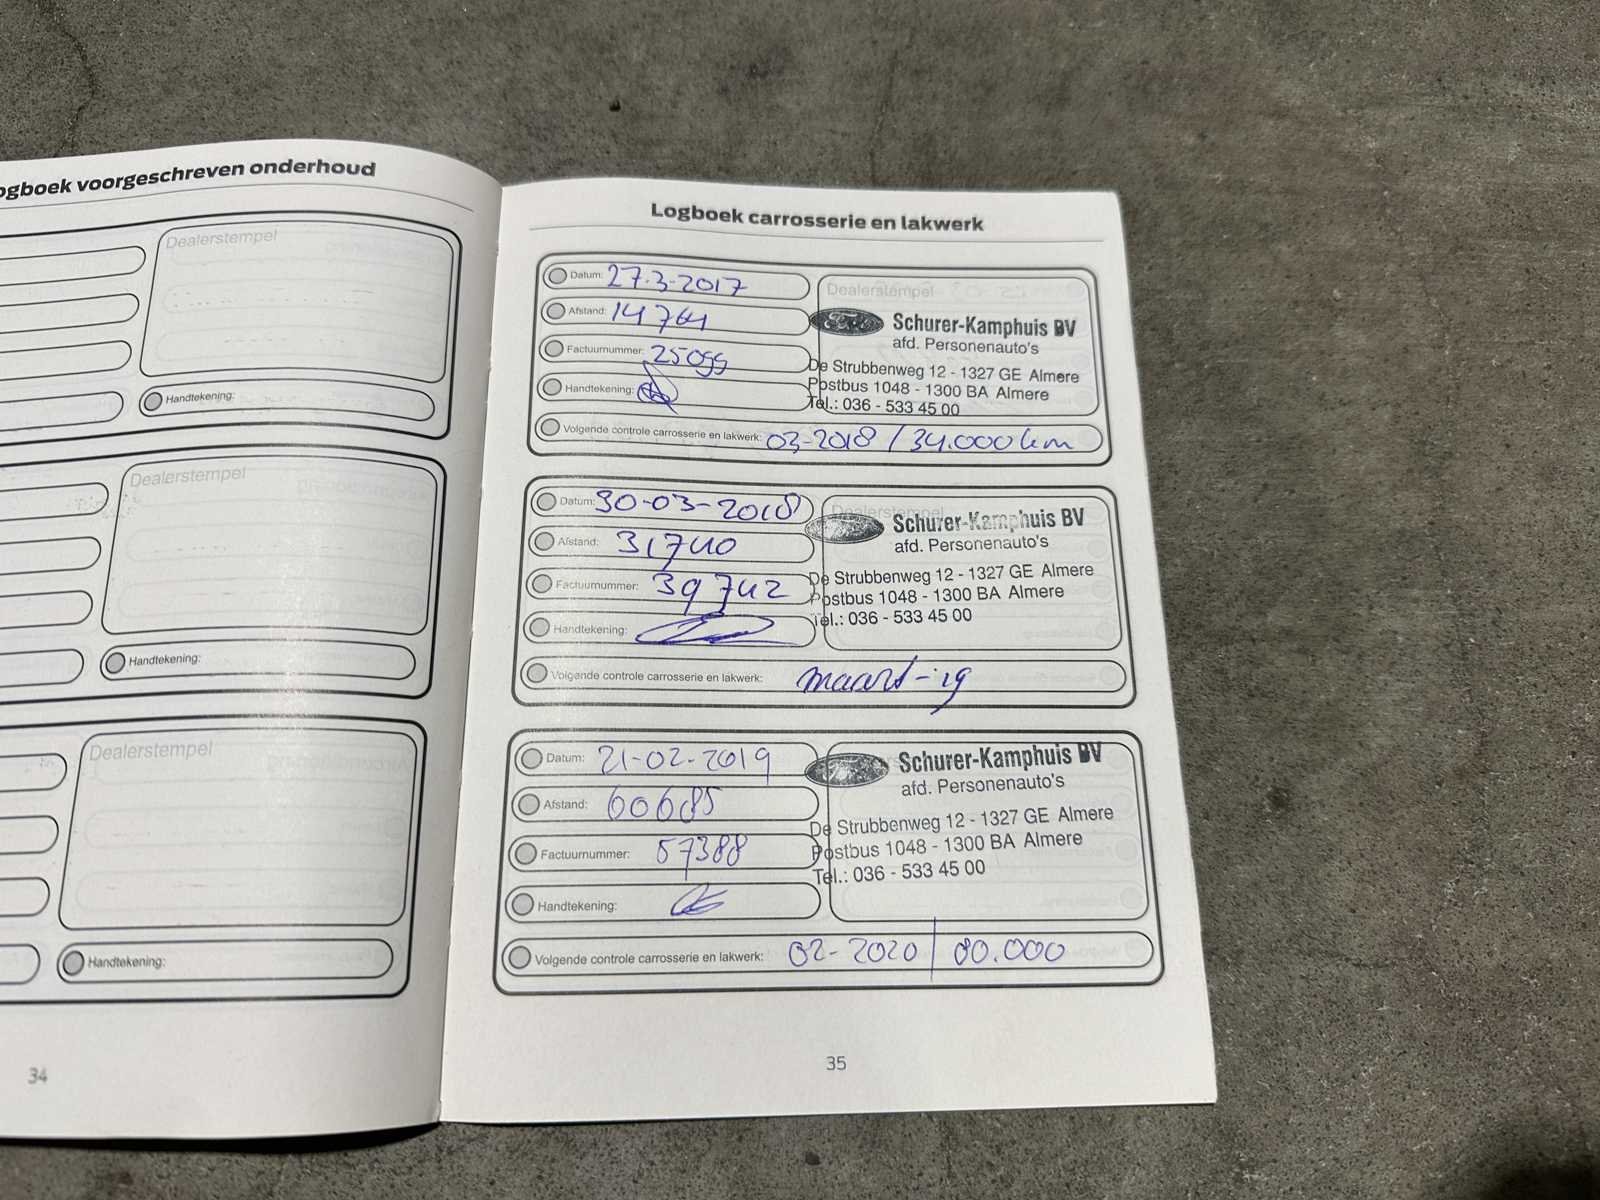 ogboek voorgeschreven onderhoud
Dealerstempel
Handtekening:
Dealerstempel
Handtekening:
Dealerstempel
Handtekening:
34
Logboek carrosserie en lakwerk
Datum: 27-3-2017
Afstand: 14764
Factuurnummer: 25099
Handtekening:
Dealerstempel
Ford
Schurer-Kamphuis BV
afd. Personenauto's
De Strubbenweg 12 - 1327 GE Almere
Postbus 1048 - 1300 BA Almere
Tel.: 036 - 533 45 00
Volgende controle carrosserie en lakwerk: 03-2018 / 34.000 km
Datum: 30-03-2018
Afstand: 31740
Factuurnummer: 39742
Handtekening:
Dealerstempel
Schurer-Kamphuis BV
afd. Personenauto's
De Strubbenweg 12 - 1327 GE Almere
Postbus 1048 - 1300 BA Almere
Tel.: 036 - 533 45 00
Volgende controle carrosserie en lakwerk: maart-19
Datum: 21-02-2019
Afstand: 60685
Factuurnummer: 57388
Handtekening:
Schurer-Kamphuis BV
afd. Personenauto's
De Strubbenweg 12 - 1327 GE Almere
Postbus 1048 - 1300 BA Almere
Tel.: 036 - 533 45 00
Volgende controle carrosserie en lakwerk: 02-2020 | 80.000
35